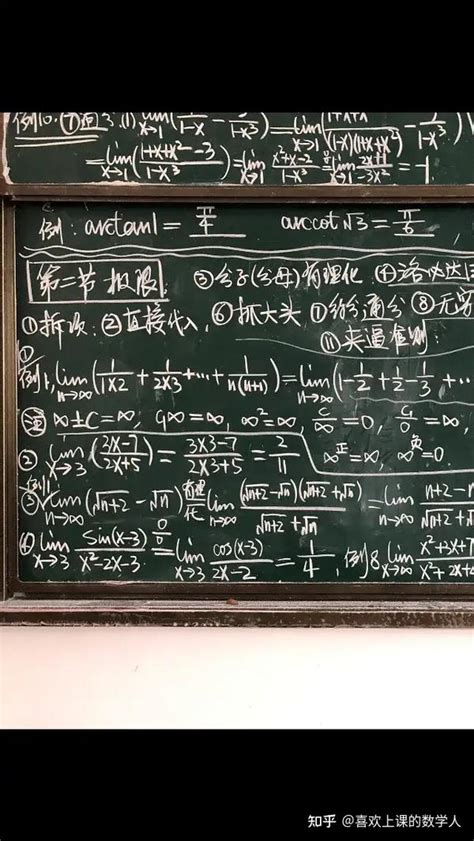 例10.⑦通分:(1) lim x→1 (1/(1-x) - 3/(1-x³)) = lim x→1 ((1+x+x²)/((1-x)(1+x+x²)) - 3/(1-x³))
= lim x→1 ((1+x+x²-3)/(1-x³)) = lim x→1 (x²+x-2)/(1-x³) = lim x→1 (2x+1)/(-3x²) = -1
例: arctan1 = π/4 arccot√3 = π/6
第二节 极限 ③分子(分母)有理化 ④洛必达
①拆项 ②直接代入 ⑥抓大头 ⑦约分 通分 ⑧无穷
⑪夹逼准则:
① 例1, lim n→∞ (1/(1×2) + 1/(2×3) + ... + 1/(n(n+1))) = lim n→∞ (1 - 1/2 + 1/2 - 1/3 + ...
注 ∞±C=∞, C∞=∞, ∞²=∞, C/∞=0, C/0=∞
② lim x→3 ((3x-7)/(2x+5)) = (3×3-7)/(2×3+5) = 2/11 ∞^正=∞, ∞^负=0
③ lim n→∞ (√(n+2) - √n) 有理化 lim n→∞ ((√(n+2) - √n)(√(n+2) + √n))/(√(n+2) + √n) = lim n→∞ (n+2-n)/(√(n+2) + √n)
④ lim x→3 sin(x-3)/(x²-2x-3) 0/0 = lim x→3 cos(x-3)/(2x-2) = 1/4, 例8 lim x→∞ (x²+3x+7)/(x²+2x+
知乎 @喜欢上课的数学人